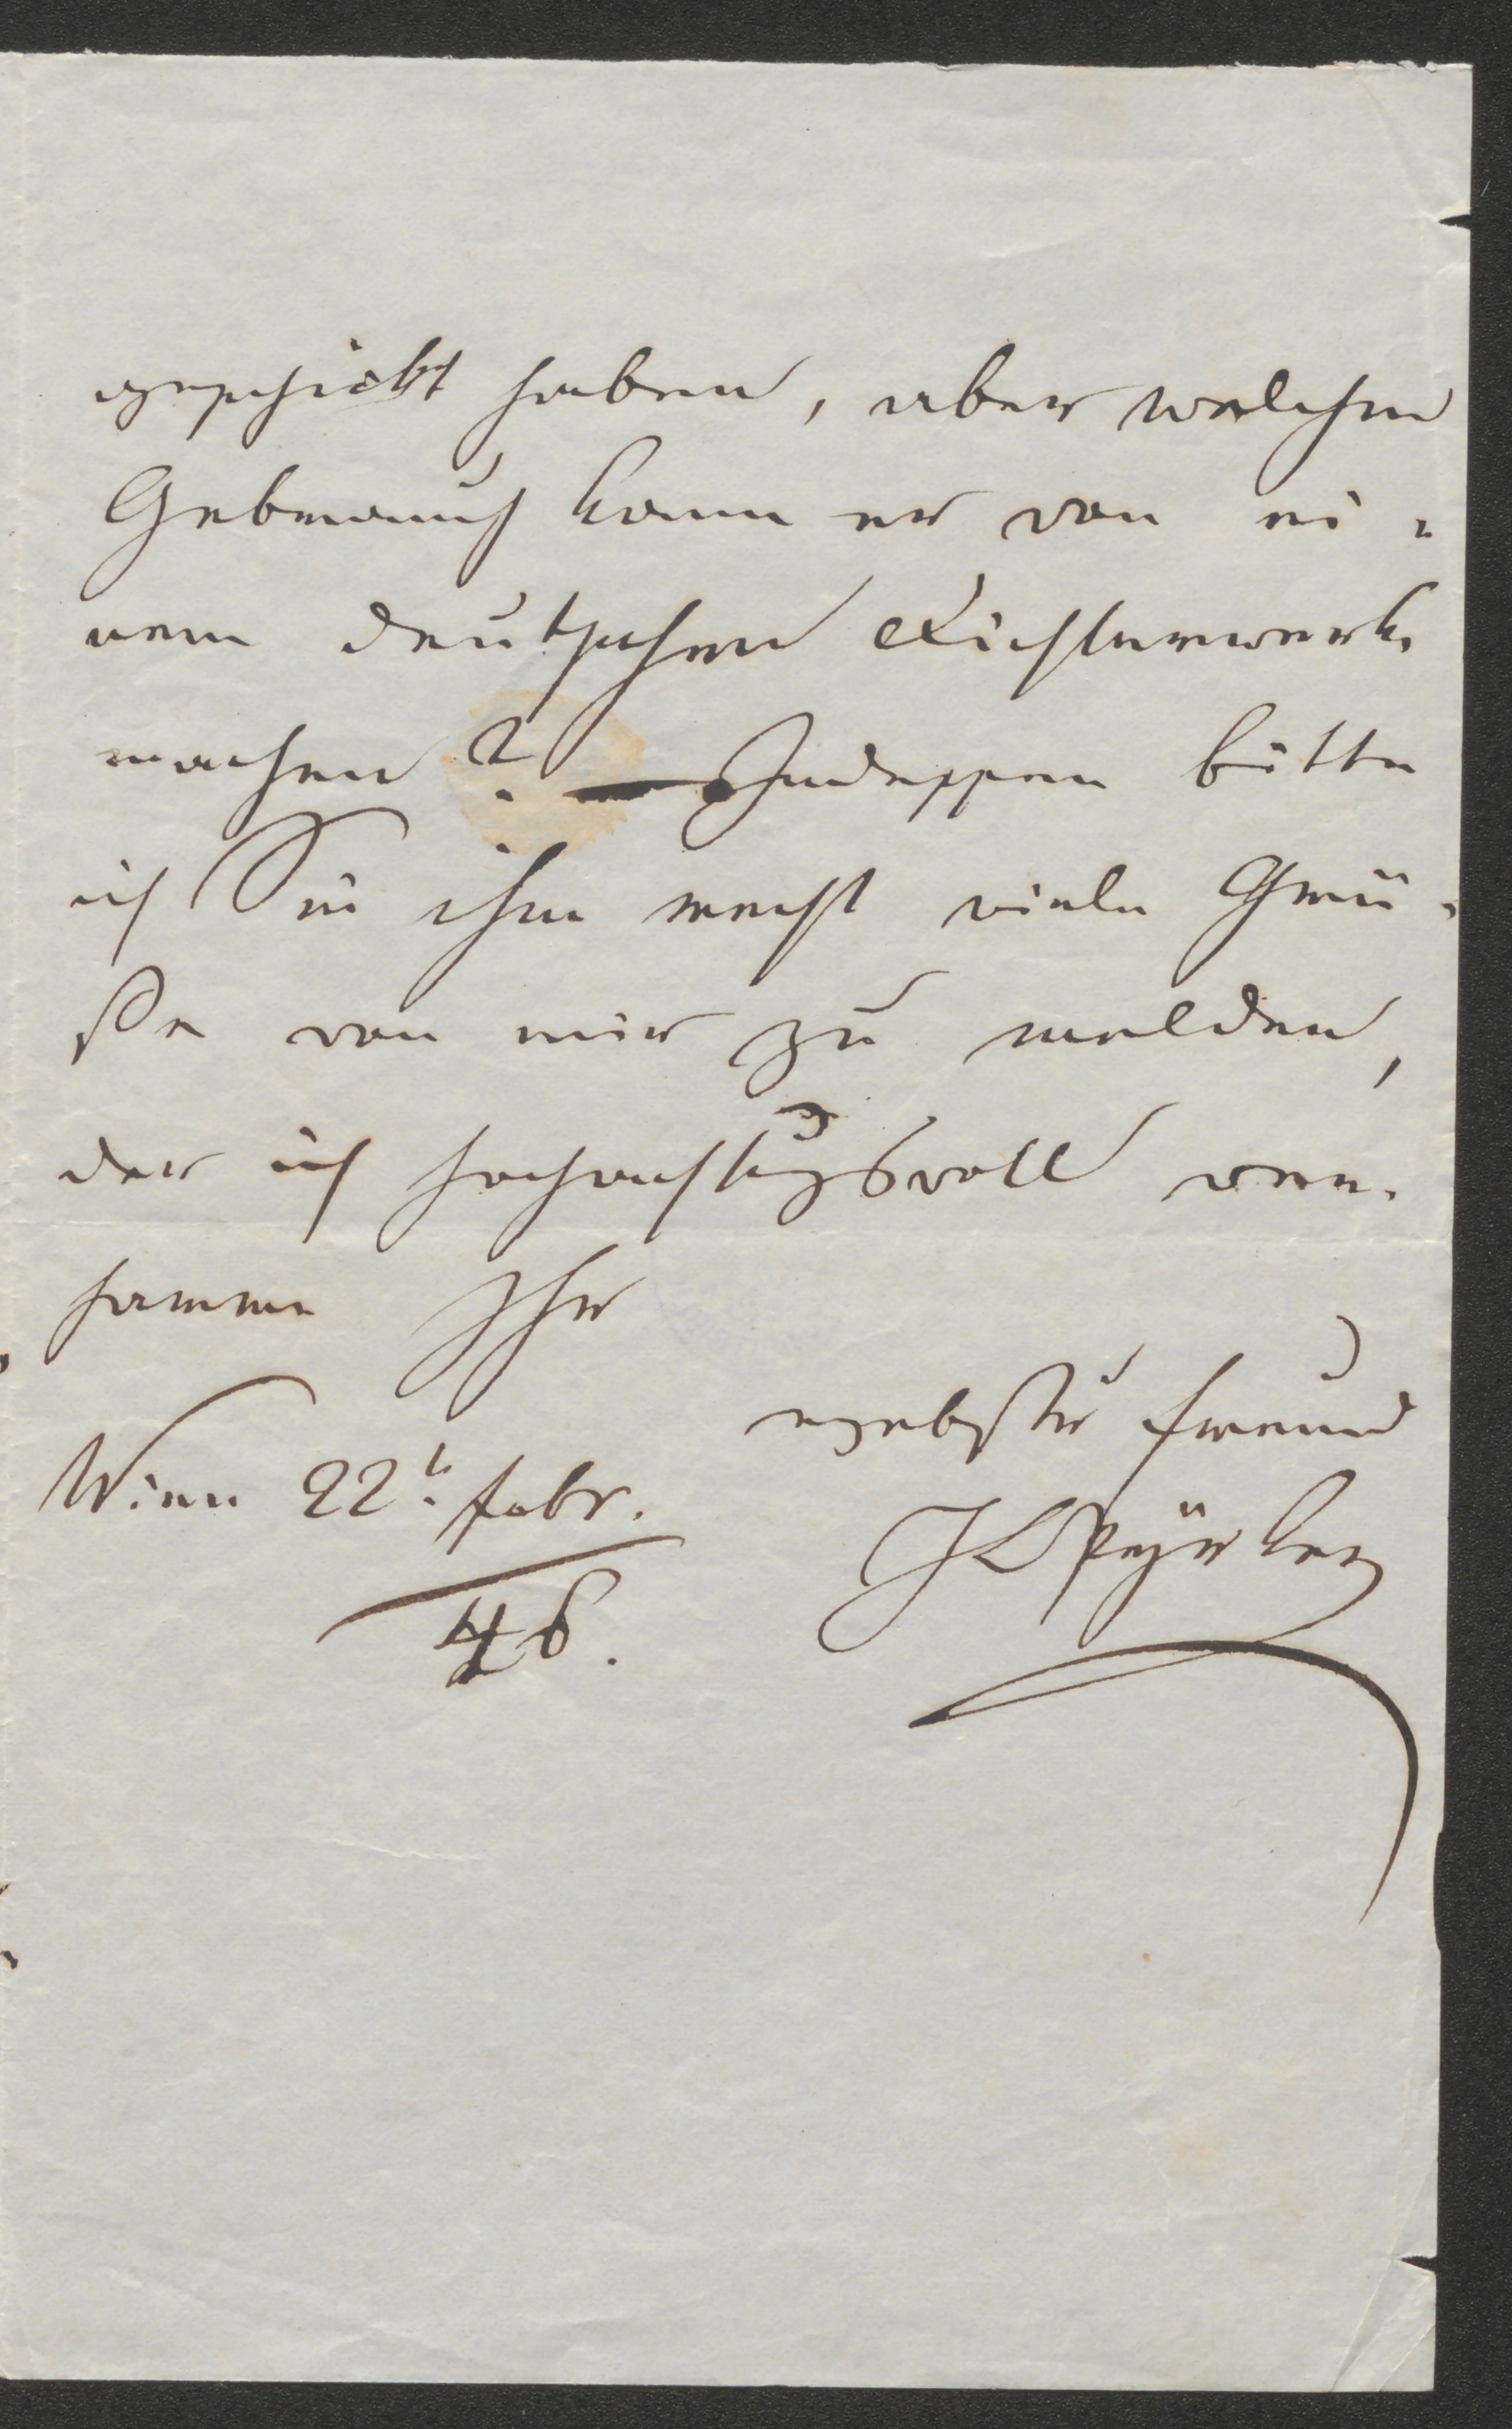 geschickt haben, aber welchen
Gebrauch kann er von ei-
nem deutschen Dichterwerk
machen? — Indessen bitte
ich Sie ihm recht viele Grü-
ße von mir zu melden,
der ich hochachtungsvoll ver-
harre Ihr
ergebster Freund
Wien 22t. Febr. JLPyrker
46.